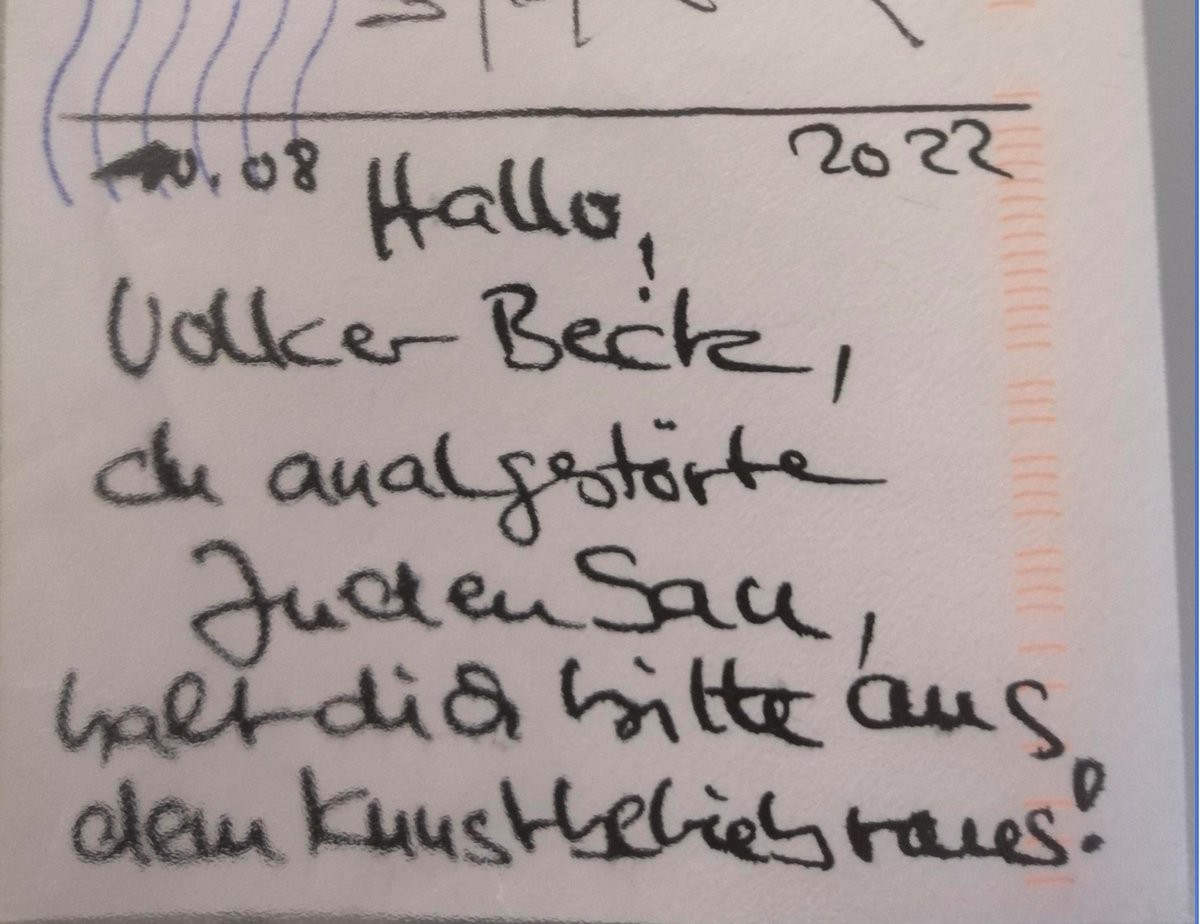 08 2022
Hallo,
Volker Beck,
du analgestörte
Juden Sau,
halt dich bitte aus
dem Kunstbetrieb raus!